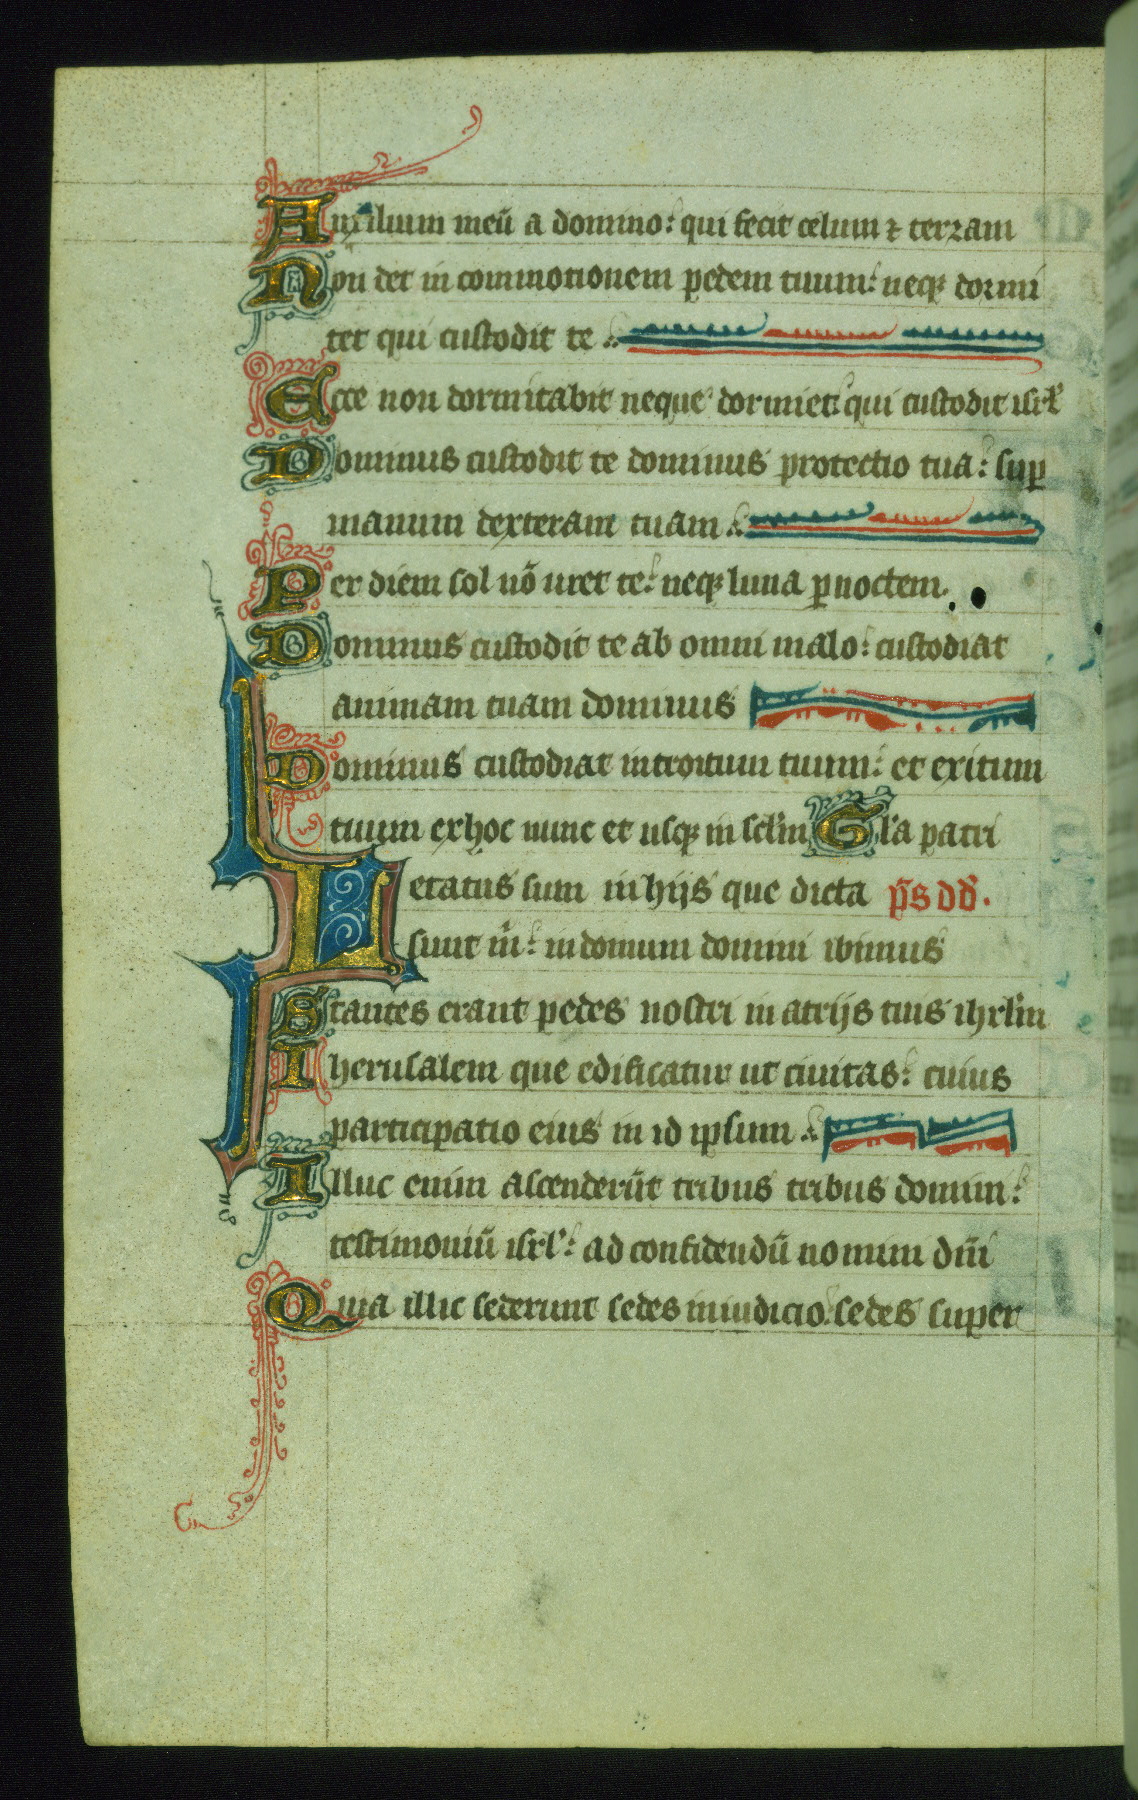 Auxilium meū a domino: qui fecit celum ⁊ terram
Non det in commotionem pedem tuum: neqꝫ dormi
tet qui custodit te
Ecce non dormitabit neque dormiet: qui custodit isrł
Dominus custodit te dominus protectio tua: suꝑ
manum dexteram tuam
Per diem sol nō uret te: neqꝫ luna ꝑ noctem.
Dominus custodit te ab omni malo: custodiat
animam tuam dominus
Dominus custodiat introitum tuum: et exitum
tuum ex hoc nunc et usqꝫ in sclm̄ Gła patri
Letatus sum in hijs que dicta p̄s dd̄.
sunt m̄: in domum domini ibimus
Stantes erant pedes nostri in atrijs tuis ihrl̄m
Iherusalem que edificatur ut ciuitas: cuius
participatio eius in id ipsum
Illuc enim ascenderūt tribus tribus domini:
testimoniū isrł: ad confidendū nomini dn̄i
Quia illic sederunt sedes in iudicio: sedes super